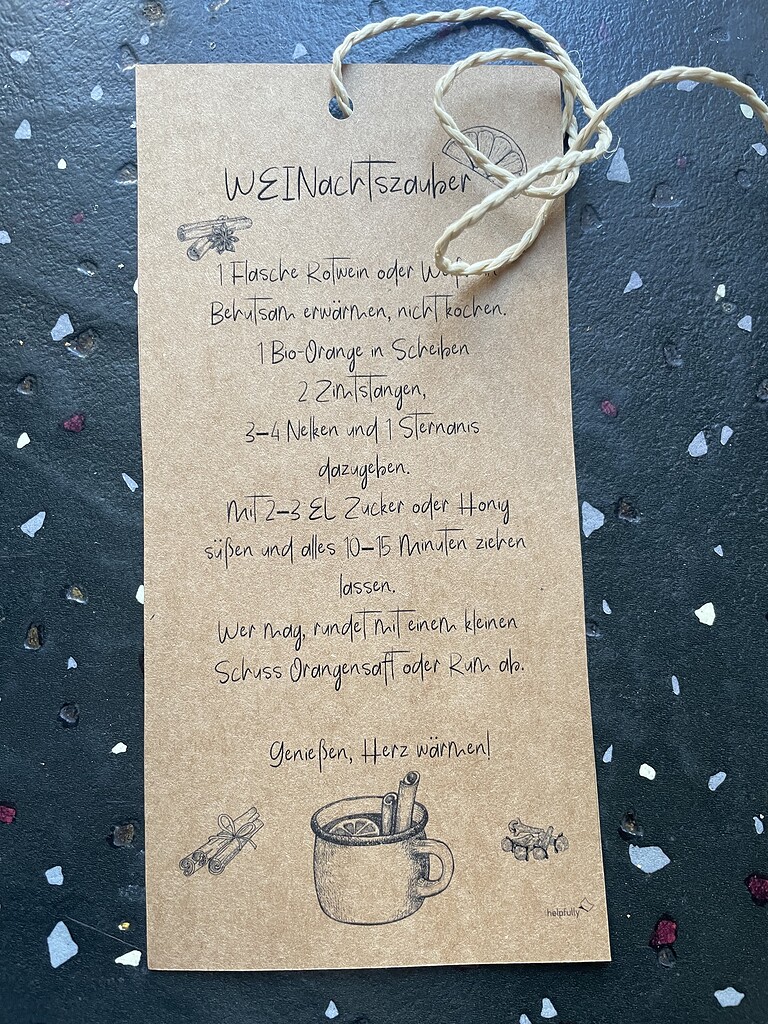 WEINachtszauber
1 Flasche Rotwein oder
Behutsam erwärmen, nicht kochen.
1 Bio-Orange in Scheiben
2 Zimtstangen,
3–4 Nelken und 1 Sternanis
dazugeben.
Mit 2–3 EL Zucker oder Honig
süßen und alles 10–15 Minuten ziehen
lassen.
Wer mag, rundet mit einem kleinen
Schuss Orangensaft oder Rum ab.
Genießen, Herz wärmen!
helpfully